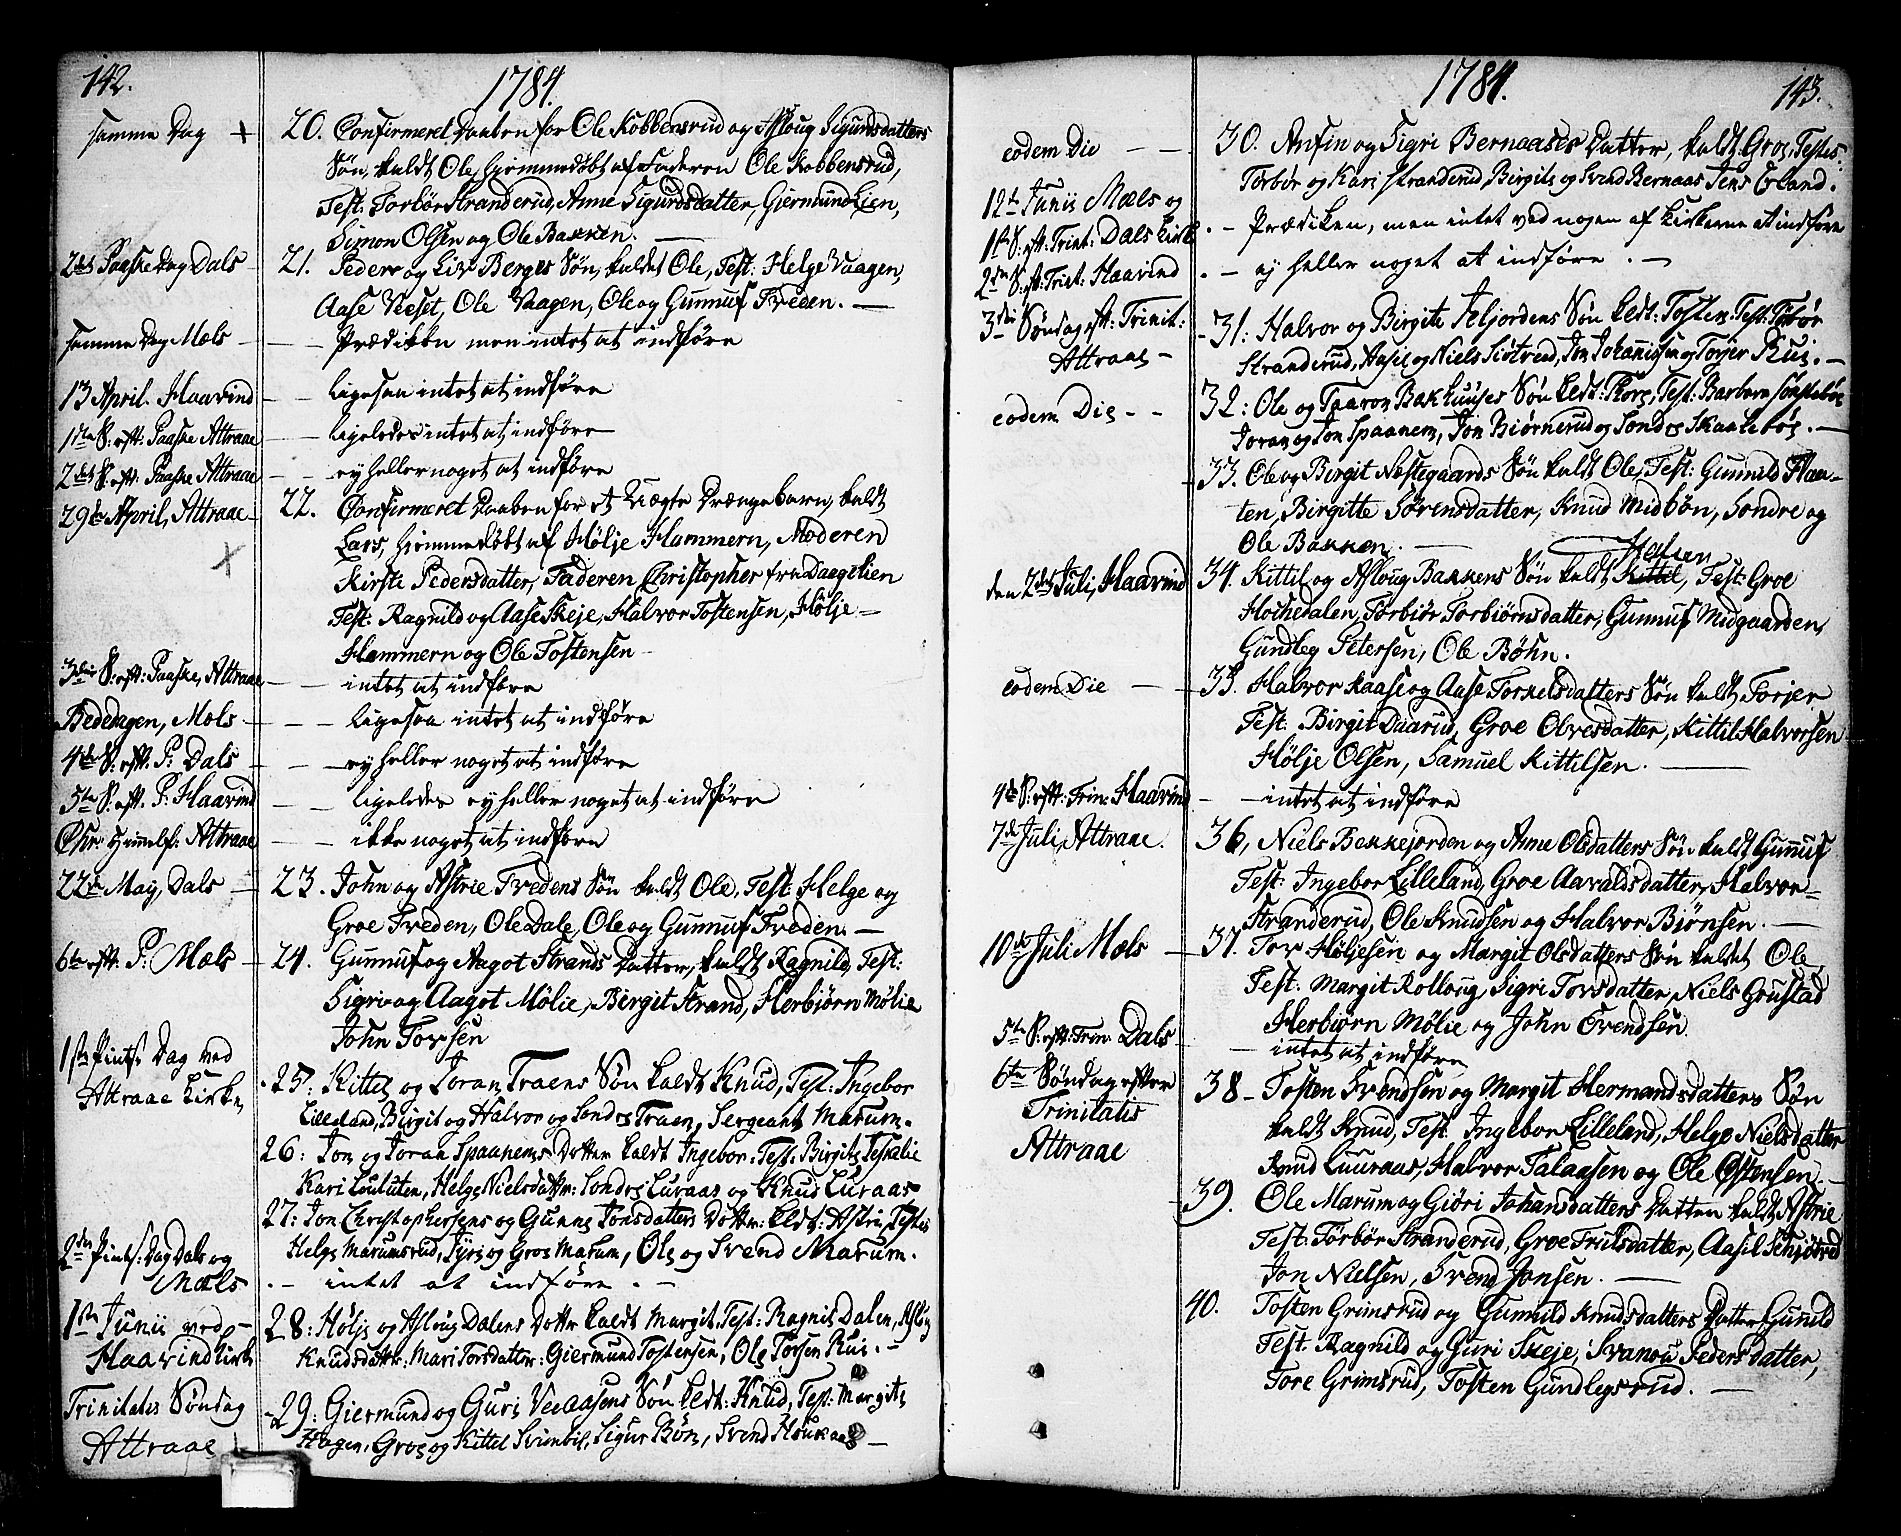 142.
1784.
samme Dag + 20. Confirmeret Daaben for Ole Kobbensrud og Asloug Sigurdsdatters
Søn, kaldt Ole, hjemmedøbt af Faderen Ole Kobbensrud,
Test: Torbør Stranderud, Anne Sigurdsdatter, Giermund Lien,
Simon Olsen og Ole Bakken.
2den Paaske Dag Dals - 21. Peder og Liv Berges Søn, kaldet Ole, Test: Helge Vaagen,
Aase Veeset, Ole Vaagen, Ole og Gunnuf Freden. -
samme Dag Mæls - - - Prædikken men intet at indføre
13 April. Haavind - - ligesaa intet at indføre
1ste S: eft: Paaske Attraae - - ligeledes intet at indføre
2den S: eft: Paaske Attraae - - ey heller noget at indføre
29de April, Attraae - 22. Confirmeret Daaben for et Uægte Drengebarn, kaldt
Lars, hjemmedøbt af Hølje Hammern, Moderen
Kirsti Pedersdatter, Faderen Christopher fra Daegilien
Test: Ragnild og Aase Skeje, Halvor Tostensen, Hølje
Hammern og Ole Tostensen
3die S: eft: Paaske, Attraae - - intet at indføre
Bededagen, Mæls - - - ligesaa intet at indføre
4de S: eft. P: Dals - - - ey heller noget at indføre
5te S: eft. P: Haavind - - ligeledes ey heller noget at indføre
Chr: Himmelf: Attraae - - ikke noget at indføre
22de May, Dals - 23. John og Astrie Fredens Søn kaldt Ole. Test: Helge og
Groe Freden, Ole Dale, Ole og Gunnuf Freden. -
6te eft. P: Mæls - 24. Gunnuf og Aagot Strands Datter, kaldt Ragnild, Test:
Sigri og Aagot Mølie, Bergit Strand, Herbiørn Mølie
John Torsen
1ste Pints Dag ved
Attraae Kirke, 25: Kittel og Joran Traens Søn kaldt Knud, Test: Ingebor
Lilleland, Birgit og Halvor og Sondre Traen, Sergeant Marum.
26: Jon og Joran Spaanems Dotter kaldt Ingebor. Test: Birgite
Kari Louluten, Helge Nielsdatter: Sondre Luraas og Knud Luraas
27: Jon Christophersens og Gunne Jonsdatters Dotter: kldt: Astri, Testes
Helge Marumsrud, Jyre og Groe Marum, Ole og Svend Marum.
2den Pints: Dag Dals og
Mæls - intet at indføre. -
1ste Junii ved -
Haavind Kirke 28: Hølje og Asloug Dalens Dotter kaldt Margit, Test: Ragnil Dalen, Asloug
Knudsdatter. Mari Torsdatter: Giermund Tostensen, Ole Torsen Rui. -
Trinitatis Søndag
Attraae - 29: Giermund og Guri Veelaasens Søn kldt: Knud, Test: Margite
Hagen, Groe og Kittel Svimbil, Sigur Bøn, Svend Houkaas -
1784.
143.
eodem Die - - 30. Anfin og Sigri Bernaases Datter, kaldt Groe, Testis:
Torbør og Kari Stranderud, Birgite og Svend Bernaas Jens Erland.
12te Junii Mæls og
1ste S: eft: Trint: Dals Kirke - Prædiken, men intet ved nogen af Kirkerne at indføre
2den S: eft: Trint: Haavind - ej heller noget at indføre. -
3die Søndag eft: Trinit:
Attraae - 31: Halvor og Birgite Jeljordens Søn kldt: Tosten: Test: Torbør
Stranderud, Aasil og Niels Siøtved, Jon Johannissen og Torjer Rui. -
eodem Die - - 32: Ole og Taaron Bakhuuses Søn kldt: Thore, Test: Barbara Sønstebøe
Joran og Jon Spaanem, Jon Biørnerud og Sondre Skaalebøe. -
33. Ole og Birgit Nestegaards Søn kaldt Ole, Test: Gunnild Haa-
ten, Birgitte Sørensdatter, Knud Midbøn, Sondre og
Ole Bakken. -
den 2den Juli, Haavind 34. Kittil og Asloug Bakkens Søn kaldt Kittil, Test: Groe
Hochedalen, Torbiør Torbiørnsdatter, Gunnuf Midgaarden,
Gundleg Petersen, Ole Bøhn.
eodem Die - 35. Halvor Kaase og Aase Torkelsdatters Søn kaldt Torjer
Test: Birgit Daarud, Groe Olvesdatter, Kittil Halvorsen
Hølje Olsen, Samuel Kittilsen. -
4de S: eft: Trin: Haavind - - intet at indføre
7de Juli, Attraae. 36, Niels Bekkejorden og Anne Olsdatters Søn kaldt Gunuf
Test: Ingebor Lilleland, Groe Aavaldsdatter, Halvor
Stranderud, Ole Knudsen og Halvor Biønsen. -
10de Juli Mæls - 37. Tor Høljesen og Margit Olsdatters Søn kaldet Ole,
Test: Margit Rolloug, Sigri Torsdatter, Niels Groustad
Herbiørn Mølie og John Evendsen.
5te S: eft: Trin: Dals - - intet at indføre
6te Søndag efter
Trinitatis
Attraae 38 - Tosten Svendsen og Margit Hermandsdatters Søn
kaldt Knud, Test: Ingebor Lilleland, Helge Nielsdatter
Knud Luuraas, Halvor Talaasen og Ole Østensen. -
39. Ole Marum og Giøri Johansdatters Datter kaldt Astrie
Test: Torbør Stranderud, Groe Trulsdatter, Aasil Schjøtved
Jon Nielsen, Svend Jonsen. -
40. Tosten Grimsrud og Gunnild Knudsdatters Datter Gunild
Test: Ragnild og Guri Skeje, Svanou Pedersdatter,
Tore Grimsrud, Tosten Gundlegsrud. -